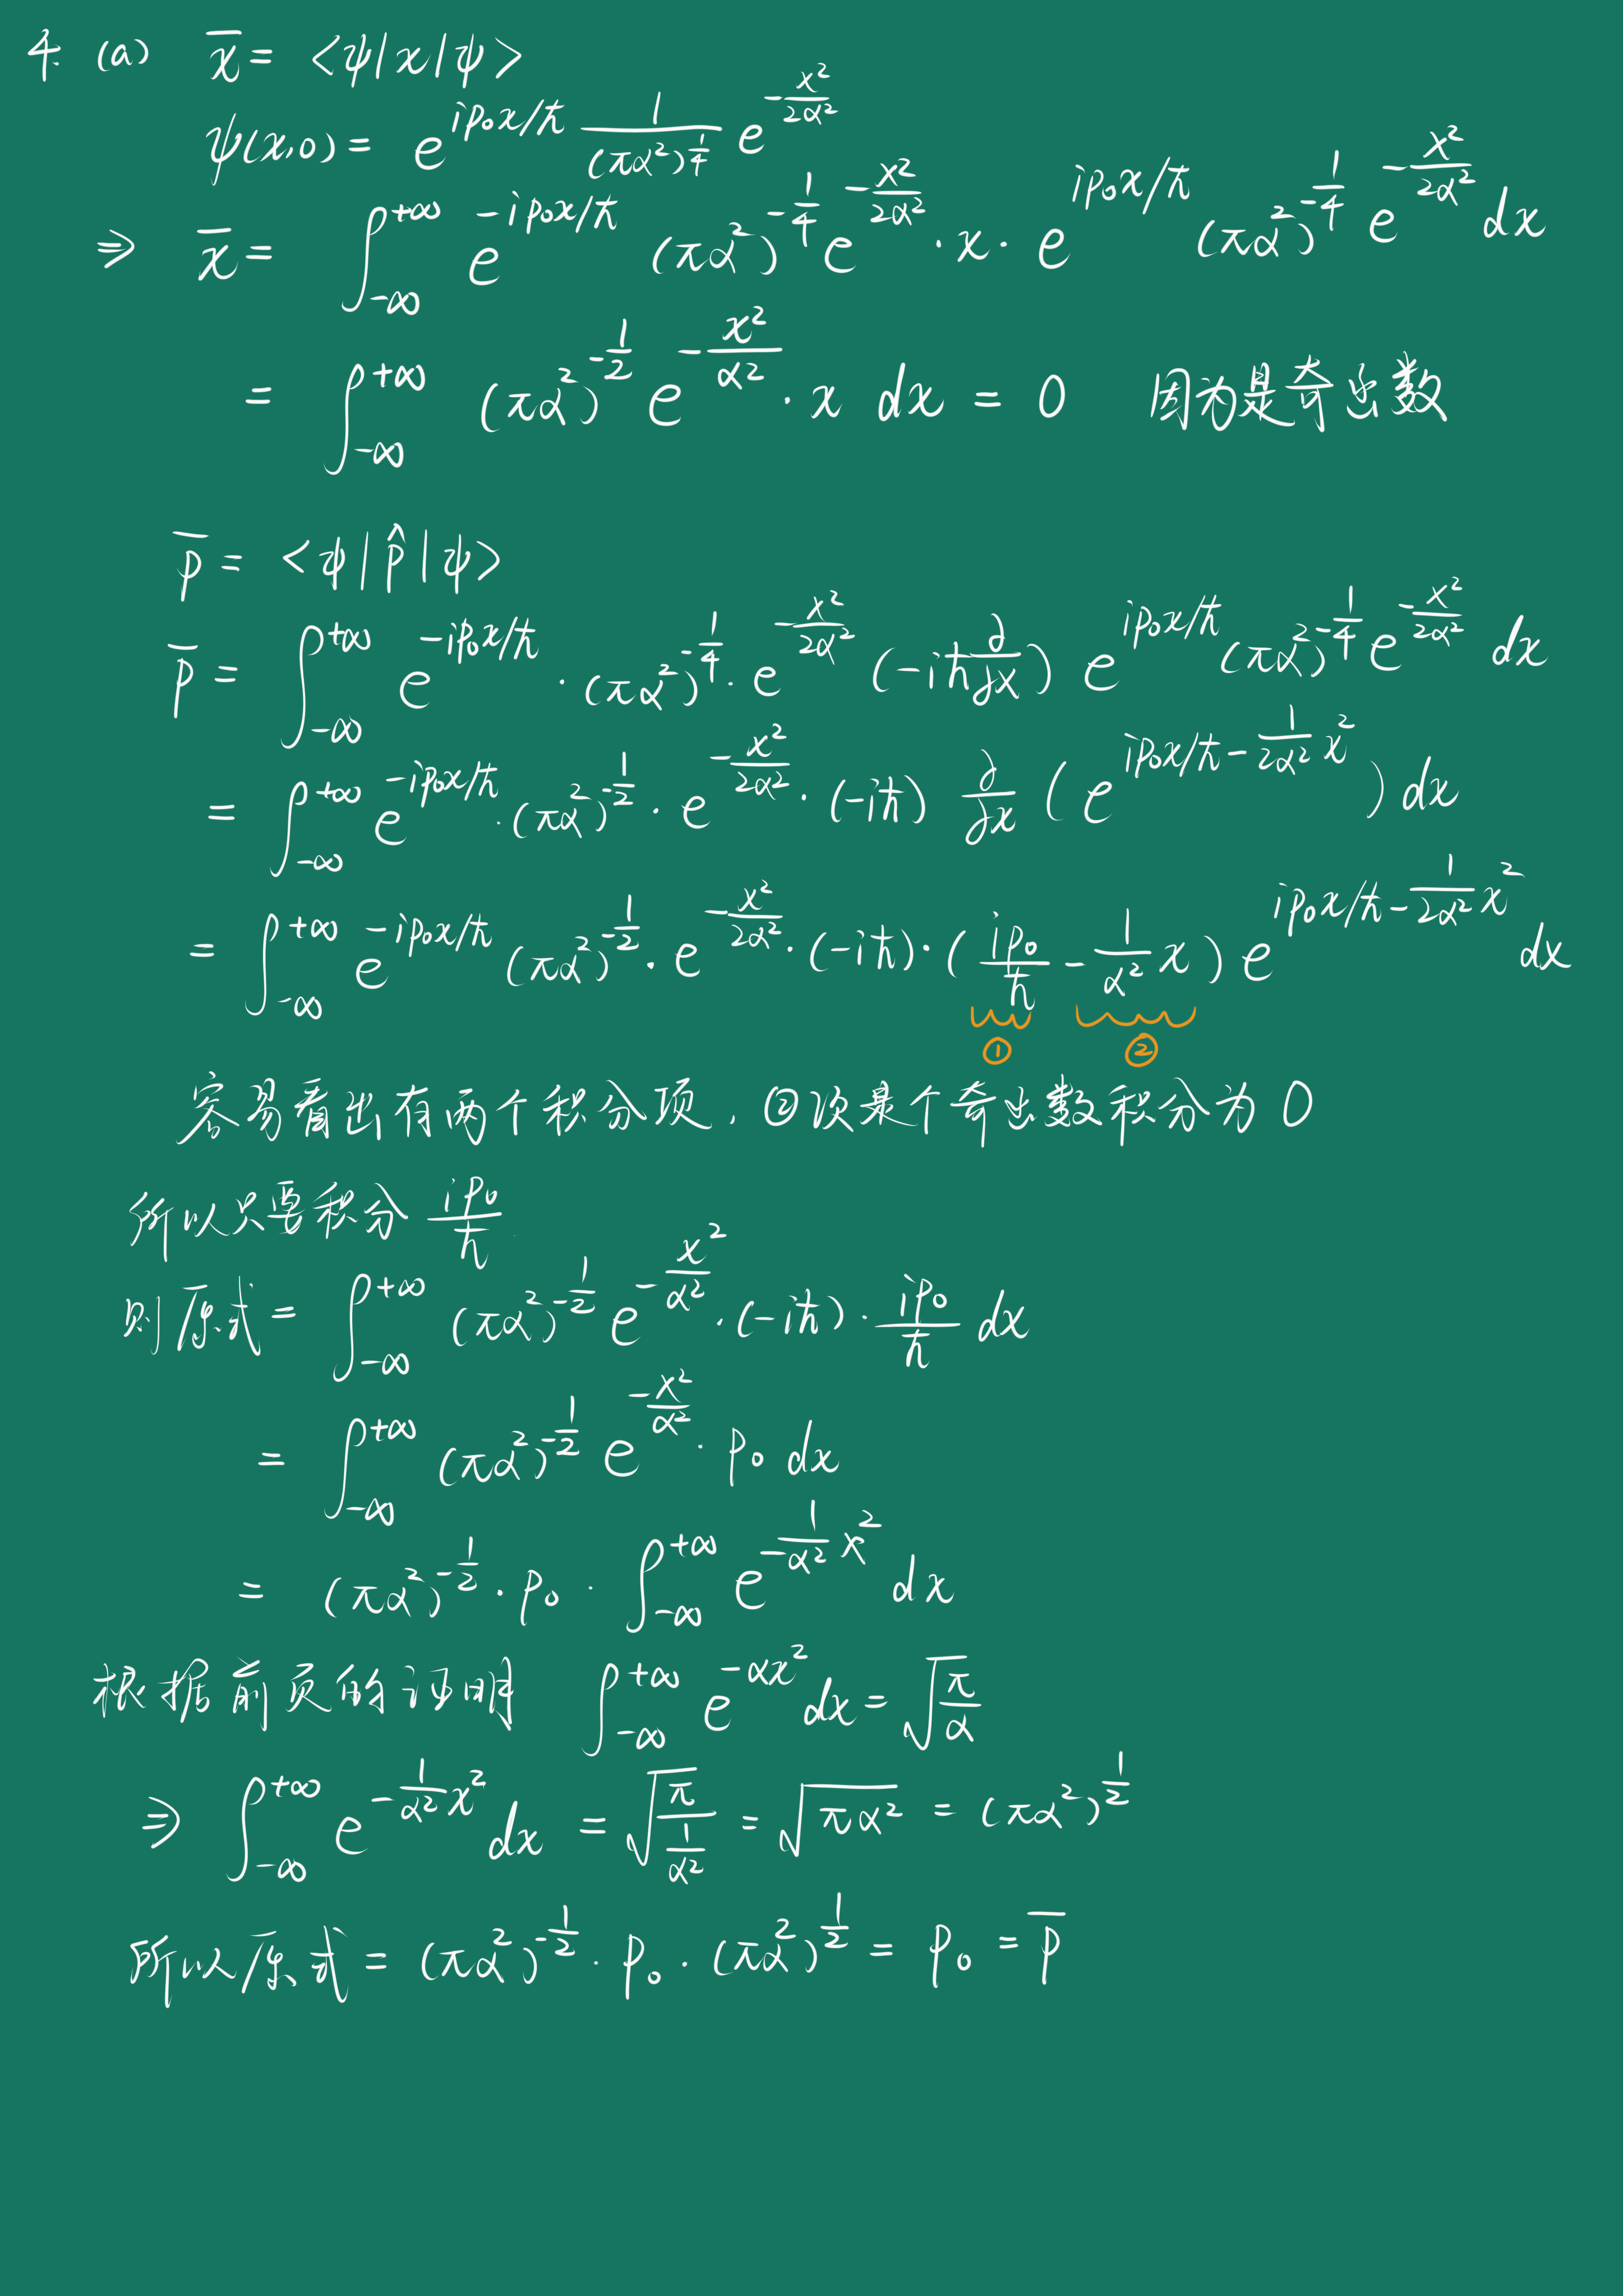 4. (a) x̄ = <ψ|x|ψ>
ψ(x,0) = e^{ip₀x/ħ} \frac{1}{(πα²)^{\frac{1}{4}}} e^{-\frac{x²}{2α²}}
⇒ x̄ = ∫_{-∞}^{+∞} e^{-ip₀x/ħ} (πα²)^{-\frac{1}{4}} e^{-\frac{x²}{2α²}} · x · e^{ip₀x/ħ} (πα²)^{-\frac{1}{4}} e^{-\frac{x²}{2α²}} dx
= ∫_{-∞}^{+∞} (πα²)^{-\frac{1}{2}} e^{-\frac{x²}{α²}} · x dx = 0 因为是奇函数
p̄ = <ψ|p̂|ψ>
p̄ = ∫_{-∞}^{+∞} e^{-ip₀x/ħ} · (πα²)^{-\frac{1}{4}} · e^{-\frac{x²}{2α²}} (-iħ\frac{∂}{∂x}) e^{ip₀x/ħ} (πα²)^{-\frac{1}{4}} e^{-\frac{x²}{2α²}} dx
= ∫_{-∞}^{+∞} e^{-ip₀x/ħ} · (πα²)^{-\frac{1}{2}} · e^{-\frac{x²}{2α²}} · (-iħ) \frac{∂}{∂x} (e^{ip₀x/ħ - \frac{1}{2α²}x²}) dx
= ∫_{-∞}^{+∞} e^{-ip₀x/ħ} (πα²)^{-\frac{1}{2}} · e^{-\frac{x²}{2α²}} · (-iħ) · (\frac{ip₀}{ħ} - \frac{1}{α²}x) e^{ip₀x/ħ - \frac{1}{2α²}x²} dx
① ②
容易看出有两个积分项，②次是个奇函数积分为0
所以只要积分 \frac{ip₀}{ħ}
则原式 = ∫_{-∞}^{+∞} (πα²)^{-\frac{1}{2}} e^{-\frac{x²}{α²}} · (-iħ) · \frac{ip₀}{ħ} dx
= ∫_{-∞}^{+∞} (πα²)^{-\frac{1}{2}} e^{-\frac{x²}{α²}} · p₀ dx
= (πα²)^{-\frac{1}{2}} · p₀ · ∫_{-∞}^{+∞} e^{-\frac{1}{α²}x²} dx
根据前页的证明 ∫_{-∞}^{+∞} e^{-αx²} dx = \sqrt{\frac{π}{α}}
⇒ ∫_{-∞}^{+∞} e^{-\frac{1}{α²}x²} dx = \sqrt{\frac{π}{\frac{1}{α²}}} = \sqrt{πα²} = (πα²)^{\frac{1}{2}}
所以原式 = (πα²)^{-\frac{1}{2}} · p₀ · (πα²)^{\frac{1}{2}} = p₀ = p̄